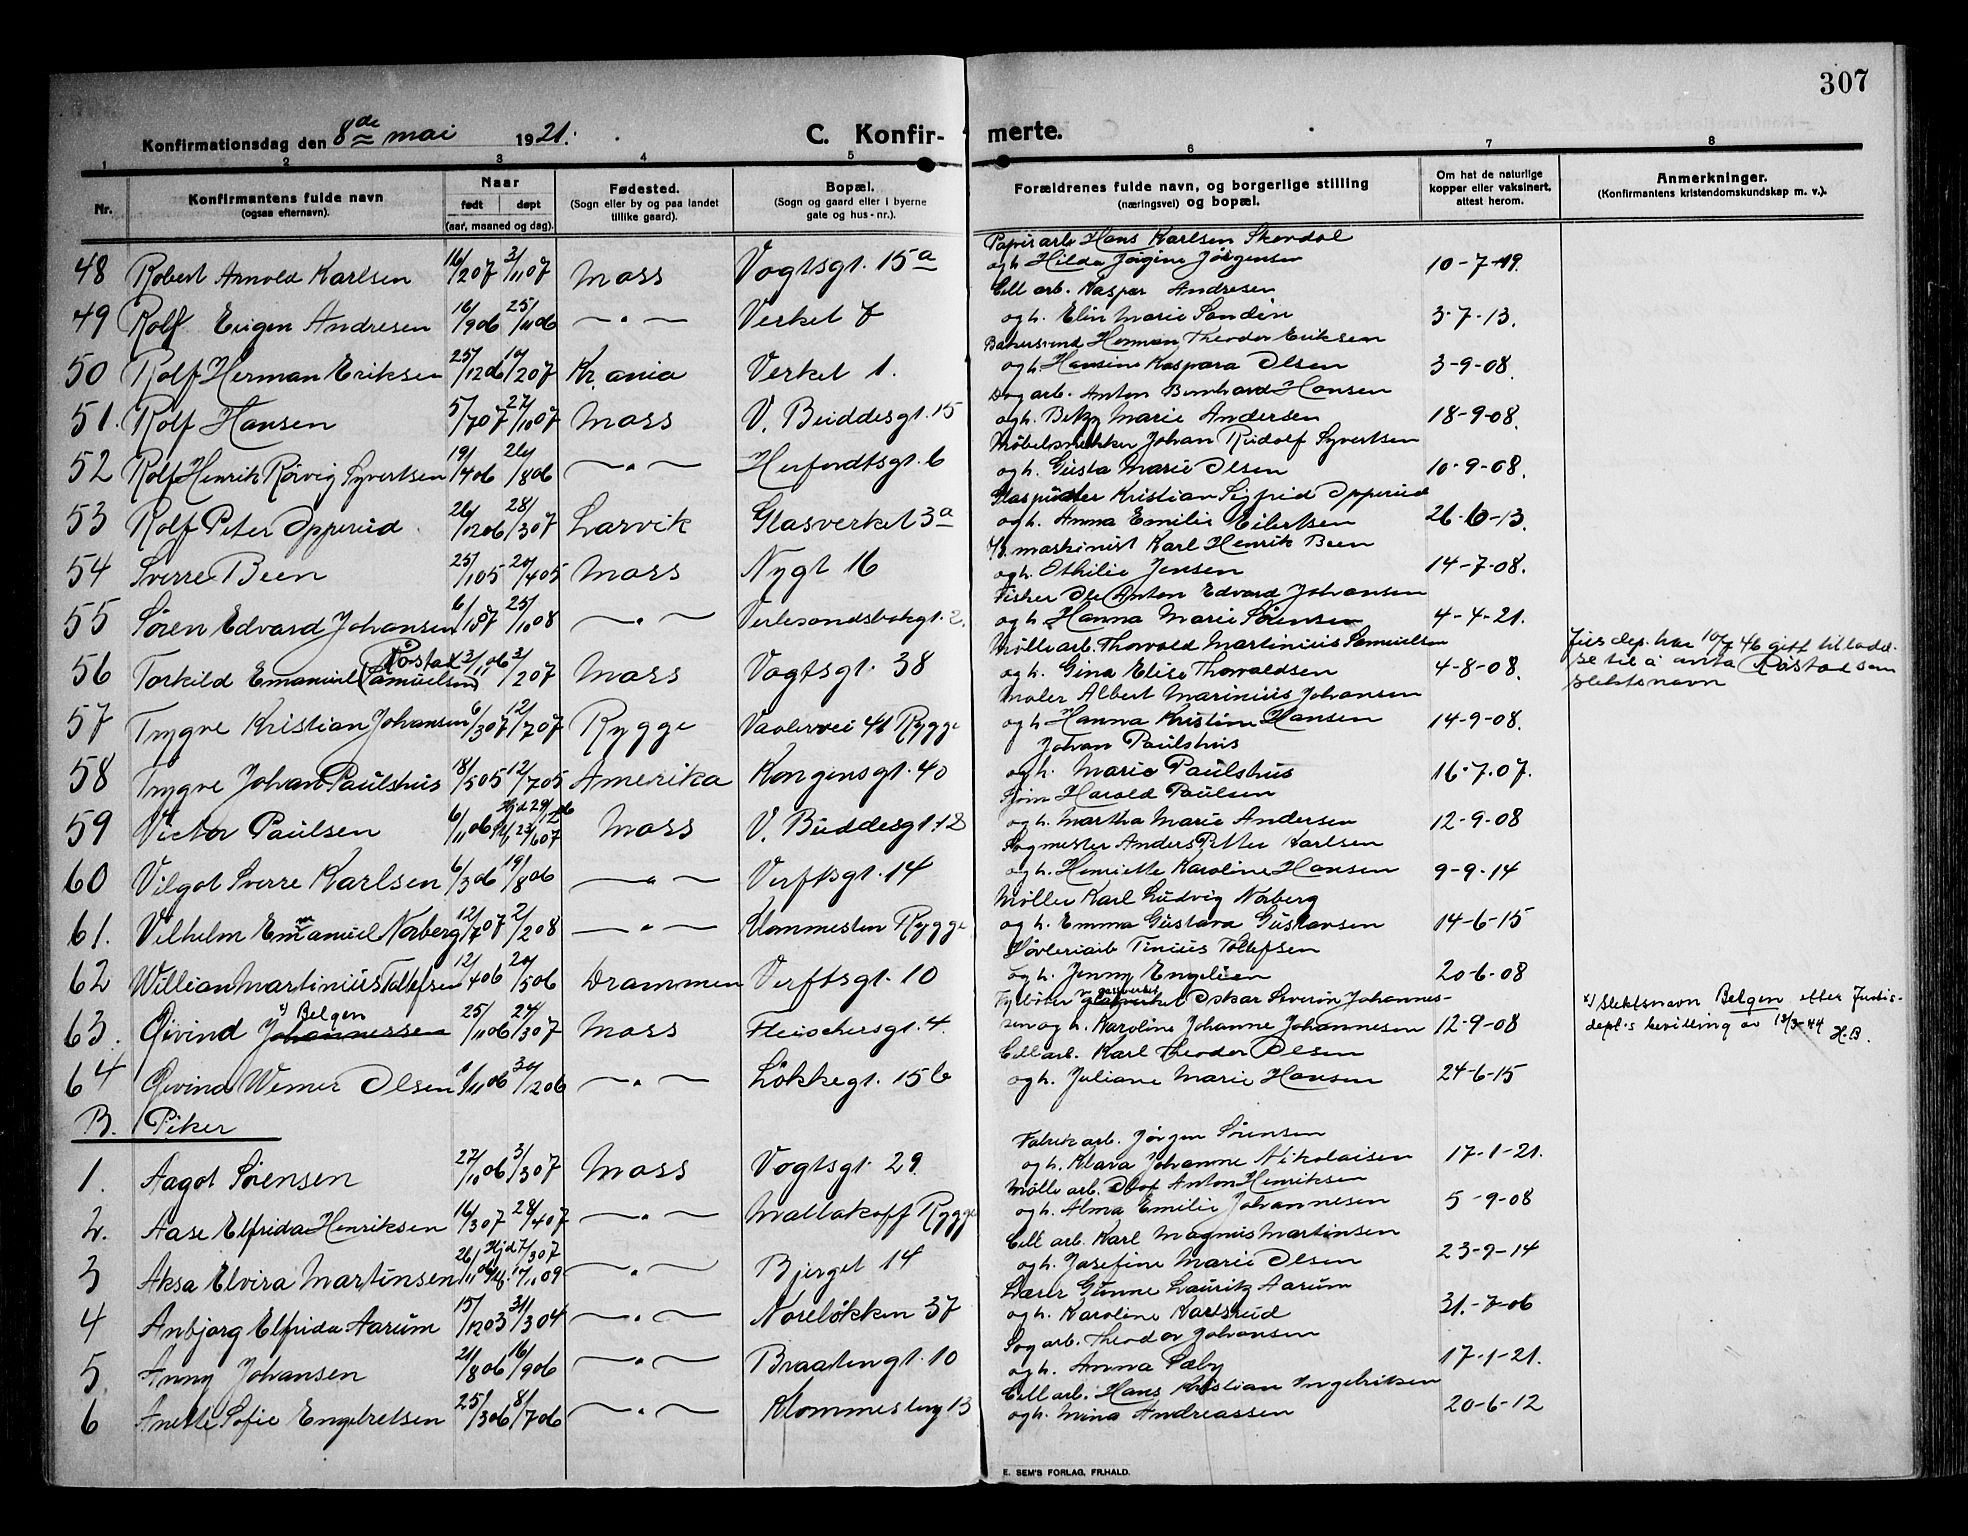 307
Konfirmationsdag den 8de mai 1921.
C. Konfirmerte.
1 2 3 4 5 6 7 8
Nr.
Konfirmantens fulde navn
(ogsaa efternavn).
Naar
født døpt
(aar, maaned og dag).
Fødested.
(Sogn eller by og paa landet
tillike gaard).
Bopæl.
(Sogn og gaard eller i byerne
gate og hus-nr.).
Forældrenes fulde navn, og borgerlige stilling
(næringsvei) og bopæl.
Om hat de naturlige
kopper eller vaksinert,
attest herom.
Anmerkninger.
(Konfirmantens kristendomskundskap m. v.).
Papirarb Hans Karlsen Skovdal
48 Robert Arnold Karlsen 16/2 07 3/11 07 Moss Vogtsgt. 15a og h. Hilda Jørgine Jørgensen 10-7-19.
Cell arb. Kasper Andresen
49 Rolf Eugen Andresen 16/9 06 25/11 06 —〃— Verket 7 og h. Elin Marie Sandén 3-7-13.
Bakersvend Herman Theodor Eriksen
50 Rolf Herman Eriksen 25/12 06 /2 07 Kr.ania Verket 1. og h. Hansine Kaspara Olsen 3-9-08.
Dagarb. Anton Bernhard Hansen
51. Rolf Hansen 5/7 07 27/10 07 Moss V. Buddesgt. 15 og h. Betzy Marie Andersen 18-9-08.
Møbelsnekker Johan Rudolf Syvertsen
52 Rolf Henrik Rørvig Syvertsen 19/4 06 26/8 06 —〃— Herfordtsgt. 6 og h. Gusta Marie Olsen 10-9-08.
Glaspuster Kristian Sigfrid Opperud
53 Rolf Peter Opperud 26/12 06 28/3 07 Larvik Glasverket 3a og h. Anna Emilie Eilertsen 26-6-13.
maskinist Karl Henrik Been
54 Sverre Been 25/1 05 20/4 05 Moss Nygt 16 og h. Othilie Jensen 14-7-08.
Fisker Ole Anton Edvard Johansen
55 Søren Edvard Johansen 6/1 07 25/10 08 —〃— Verlesandsbakgt. 2. og h. Hanna Marie Sørensen 4-4-21.
Møllearb. Thorvald Martinius Samuelsen
56 Torkild Emanuel (Samuelsen) Røstad 3/11 06 3/2 07 Moss Vogtsgt. 38 og h. Gina Elise Thorvaldsen 4-8-08.
Jus dep. har 10/7 46 gitt tillatel-
se til å anta Røstad som
slektsnavn
Maler Albert Marinius Johansen
57 Trygve Kristian Johansen 6/3 07 12/7 07 Rygge Vaalervei 41 Rygge og h. Hanna Kristine Hansen 14-9-08.
Johan Paulshus
58 Trygve Johan Paulshus 18/5 05 12/7 05 Amerika Kongensgt. 40 og h. Marie Paulshus 16.7.07.
Sjøm Harald Paulsen
59 Victor Paulsen 6/11 06 Hjd 29/12 06 23/6 07 Moss V. Buddesgt. 12 og h. Martha Marie Andersen 12-9-08
Sagmester Anders Petter Karlsen
60 Vilgot Sverre Karlsen 6/3 06 19/8 06 —〃— Verftsgt. 14 og h. Henriette Karoline Hansen 9-9-14
Møller Karl Ludvig Norberg
61. Vilhelm Emmanuel Norberg 12/7 07 2/2 08 —〃— Klommesten Rygge og h. Emma Gustava Gustavsen 14-6-15
Høvleriarb Tinius Tollefsen
62 Willian Martinius Tollefsen 12/4 06 20/5 06 Drammen Verftsgt. 10 og h. Jenny Engelien 20-6-08
Fyrbøter v gasverket Oskar Severin Johannes-
63. Øivind Johannessen x) Belgen 25/11 06 24/3 07 Moss Fleischersgt. 4. sen og h. Karoline Johanne Johannesen 12-9-08
x) Slektsnavn Belgen efter Justis-
dept.s bevilling av 13/3-44 H.B.
Cell arb. Karl Theodor Olsen
64 Øivind Werner Olsen /11 06 30/2 06 —〃— Løkkegt. 15 b og h. Juliane Marie Hansen 24-6-15
B. Piker
Fabrikarb. Jørgen Sørensen
1. Aagot Sørensen 27/10 06 3/3 07 Moss Vogtsgt. 29. og h. Klara Johanne Nikolaisen 17-1-21.
Møllearb. Olof Anton Henriksen
2. Aase Elfrida Henriksen 16/3 07 28/4 07 —〃— Mallakoff Rygge og h. Alma Emilie Johannesen 5-9-08
Cell arb. Karl Magnus Martinsen
3 Aksa Elvira Martinsen 26/11 06 Hjd 7/3 07 17/11 09 —〃— Bjerget 14 og h. Josefine Marie Olsen 23-9-14
Lærer Gunne Lauritz Aarum
4 Anbjørg Elfrida Aarum 15/12 03 31/3 04 —〃— Noreløkken 37 og h. Karoline Karlsrud 31.-7-06
Sagarb. Theodor Johansen
5. Anny Johansen 21/8 06 16/9 06 —〃— Braatengt. 10 og h. Anna Sæby 17-1-21.
Cell arb. Hans Kristian Ingebrigtsen
6 Anette Sofie Engebretsen 25/3 06 8/7 06 —〃— Klommesteng 13 og h. Mina Andreassen 20-6-12
E. SEM'S FORLAG, FR.HALD.